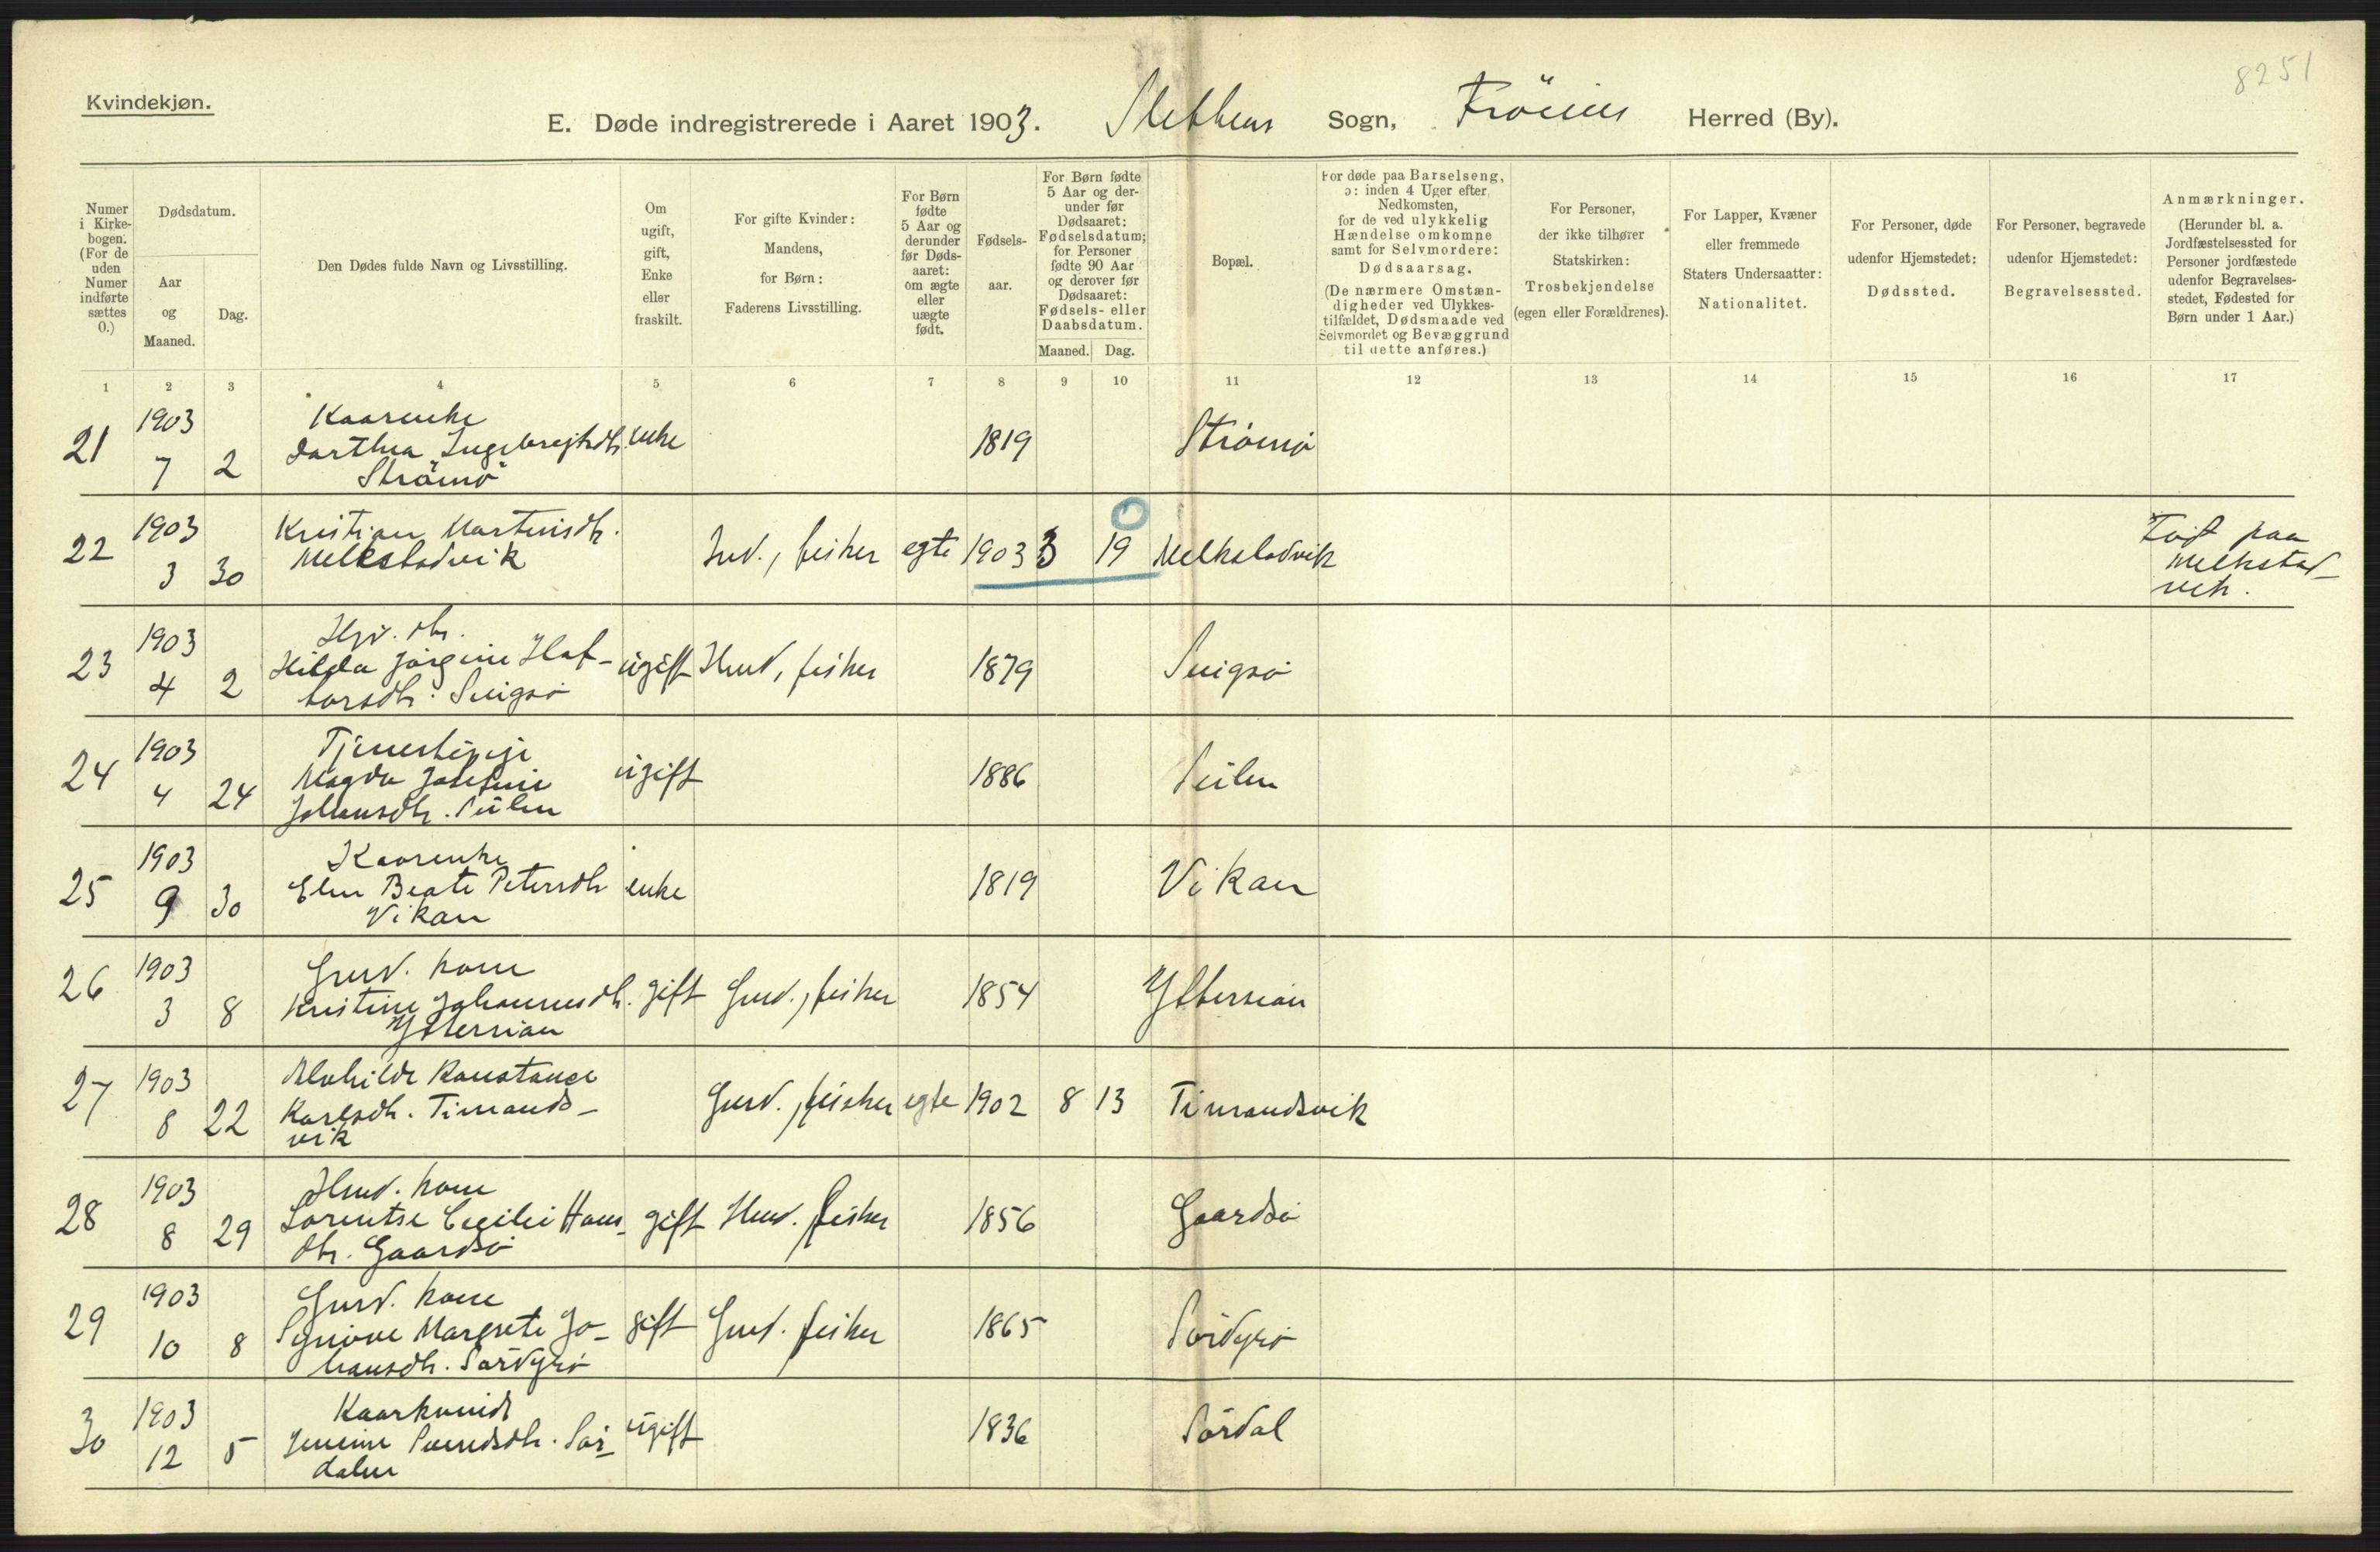 8251
Kvindekjøn.
E. Døde indregistrerede i Aaret 1903. Slethens Sogn, Fröiens Herred (By).
Numer i Kirkebogen. (For de uden Numer indførte sættes 0.)
Dødsdatum.
Aar og Maaned.
Dag.
Den Dødes fulde Navn og Livsstilling.
Om ugift, gift, Enke eller fraskilt.
For gifte Kvinder: Mandens, for Børn: Faderens Livsstilling.
For Børn fødte 5 Aar og derunder før Dødsaaret: om ægte eller uægte født.
Fødselsaar.
For Børn fødte 5 Aar og derunder før Dødsaaret: Fødselsdatum; for Personer fødte 90 Aar og derover før Dødsaaret: Fødsels- eller Daabsdatum.
Maaned. Dag.
Bopæl.
For døde paa Barselseng, ɔ: inden 4 Uger efter Nedkomsten, for de ved ulykkelig Hændelse omkomne samt for Selvmordere: Dødsaarsag. (De nærmere Omstændigheder ved Ulykkestilfældet, Dødsmaade ved Selvmordet og Bevæggrund til dette anføres.)
For Personer, der ikke tilhører Statskirken: Trosbekjendelse (egen eller Forældrenes).
For Lapper, Kvæner eller fremmede Staters Undersaatter: Nationalitet.
For Personer, døde udenfor Hjemstedet: Dødssted.
For Personer, begravede udenfor Hjemstedet: Begravelsessted.
Anmærkninger. (Herunder bl. a. Jordfæstelsessted for Personer jordfæstede udenfor Begravelsesstedet, Fødested for Børn under 1 Aar.)
1 2 3 4 5 6 7 8 9 10 11 12 13 14 15 16 17
21 1903 7 2 Kaarenke Dorthea Ingebrigtsdtr. Strömö enke 1819 Strömö
22 1903 3 30 Kristian Martinsdtr. Melkstadvik Ind., fisker egte 1903 3 19 Melkstadvik Født paa Melkstadvik.
23 1903 4 2 Hilda Jörgine Haftorsdtr. ugift Hmd, fisker 1879
24 1903 4 24 Tjenestepige Magda Josefine Johansdtr. ugift 1886
25 1903 9 30 Kaarenke Elen Beate Petersdtr Vikan enke 1819 Vikan
26 1903 3 8 Grd. kone Kristine Johannesdtr. Ytterrian gift Grd., fisker 1854 Ytterrian
27 1903 8 22 Alvhilde Konstance Karlsdtr. Timrandsvik Grd., fisker egte 1902 8 13 Timrandsvik
28 1903 8 29 Hmd. kone Lorentse Cecilie Hansdtr. Gaardsö gift Hmd. fisker 1856 Gaardsö
29 1903 10 8 Grd. kone Synnöve Margrete Johansdtr. Sördyrö gift Grd. fisker 1865 Sördyrö
30 1903 12 5 Kaarkvinde Svendsdtr. Sördalen ugift 1836 Sördal